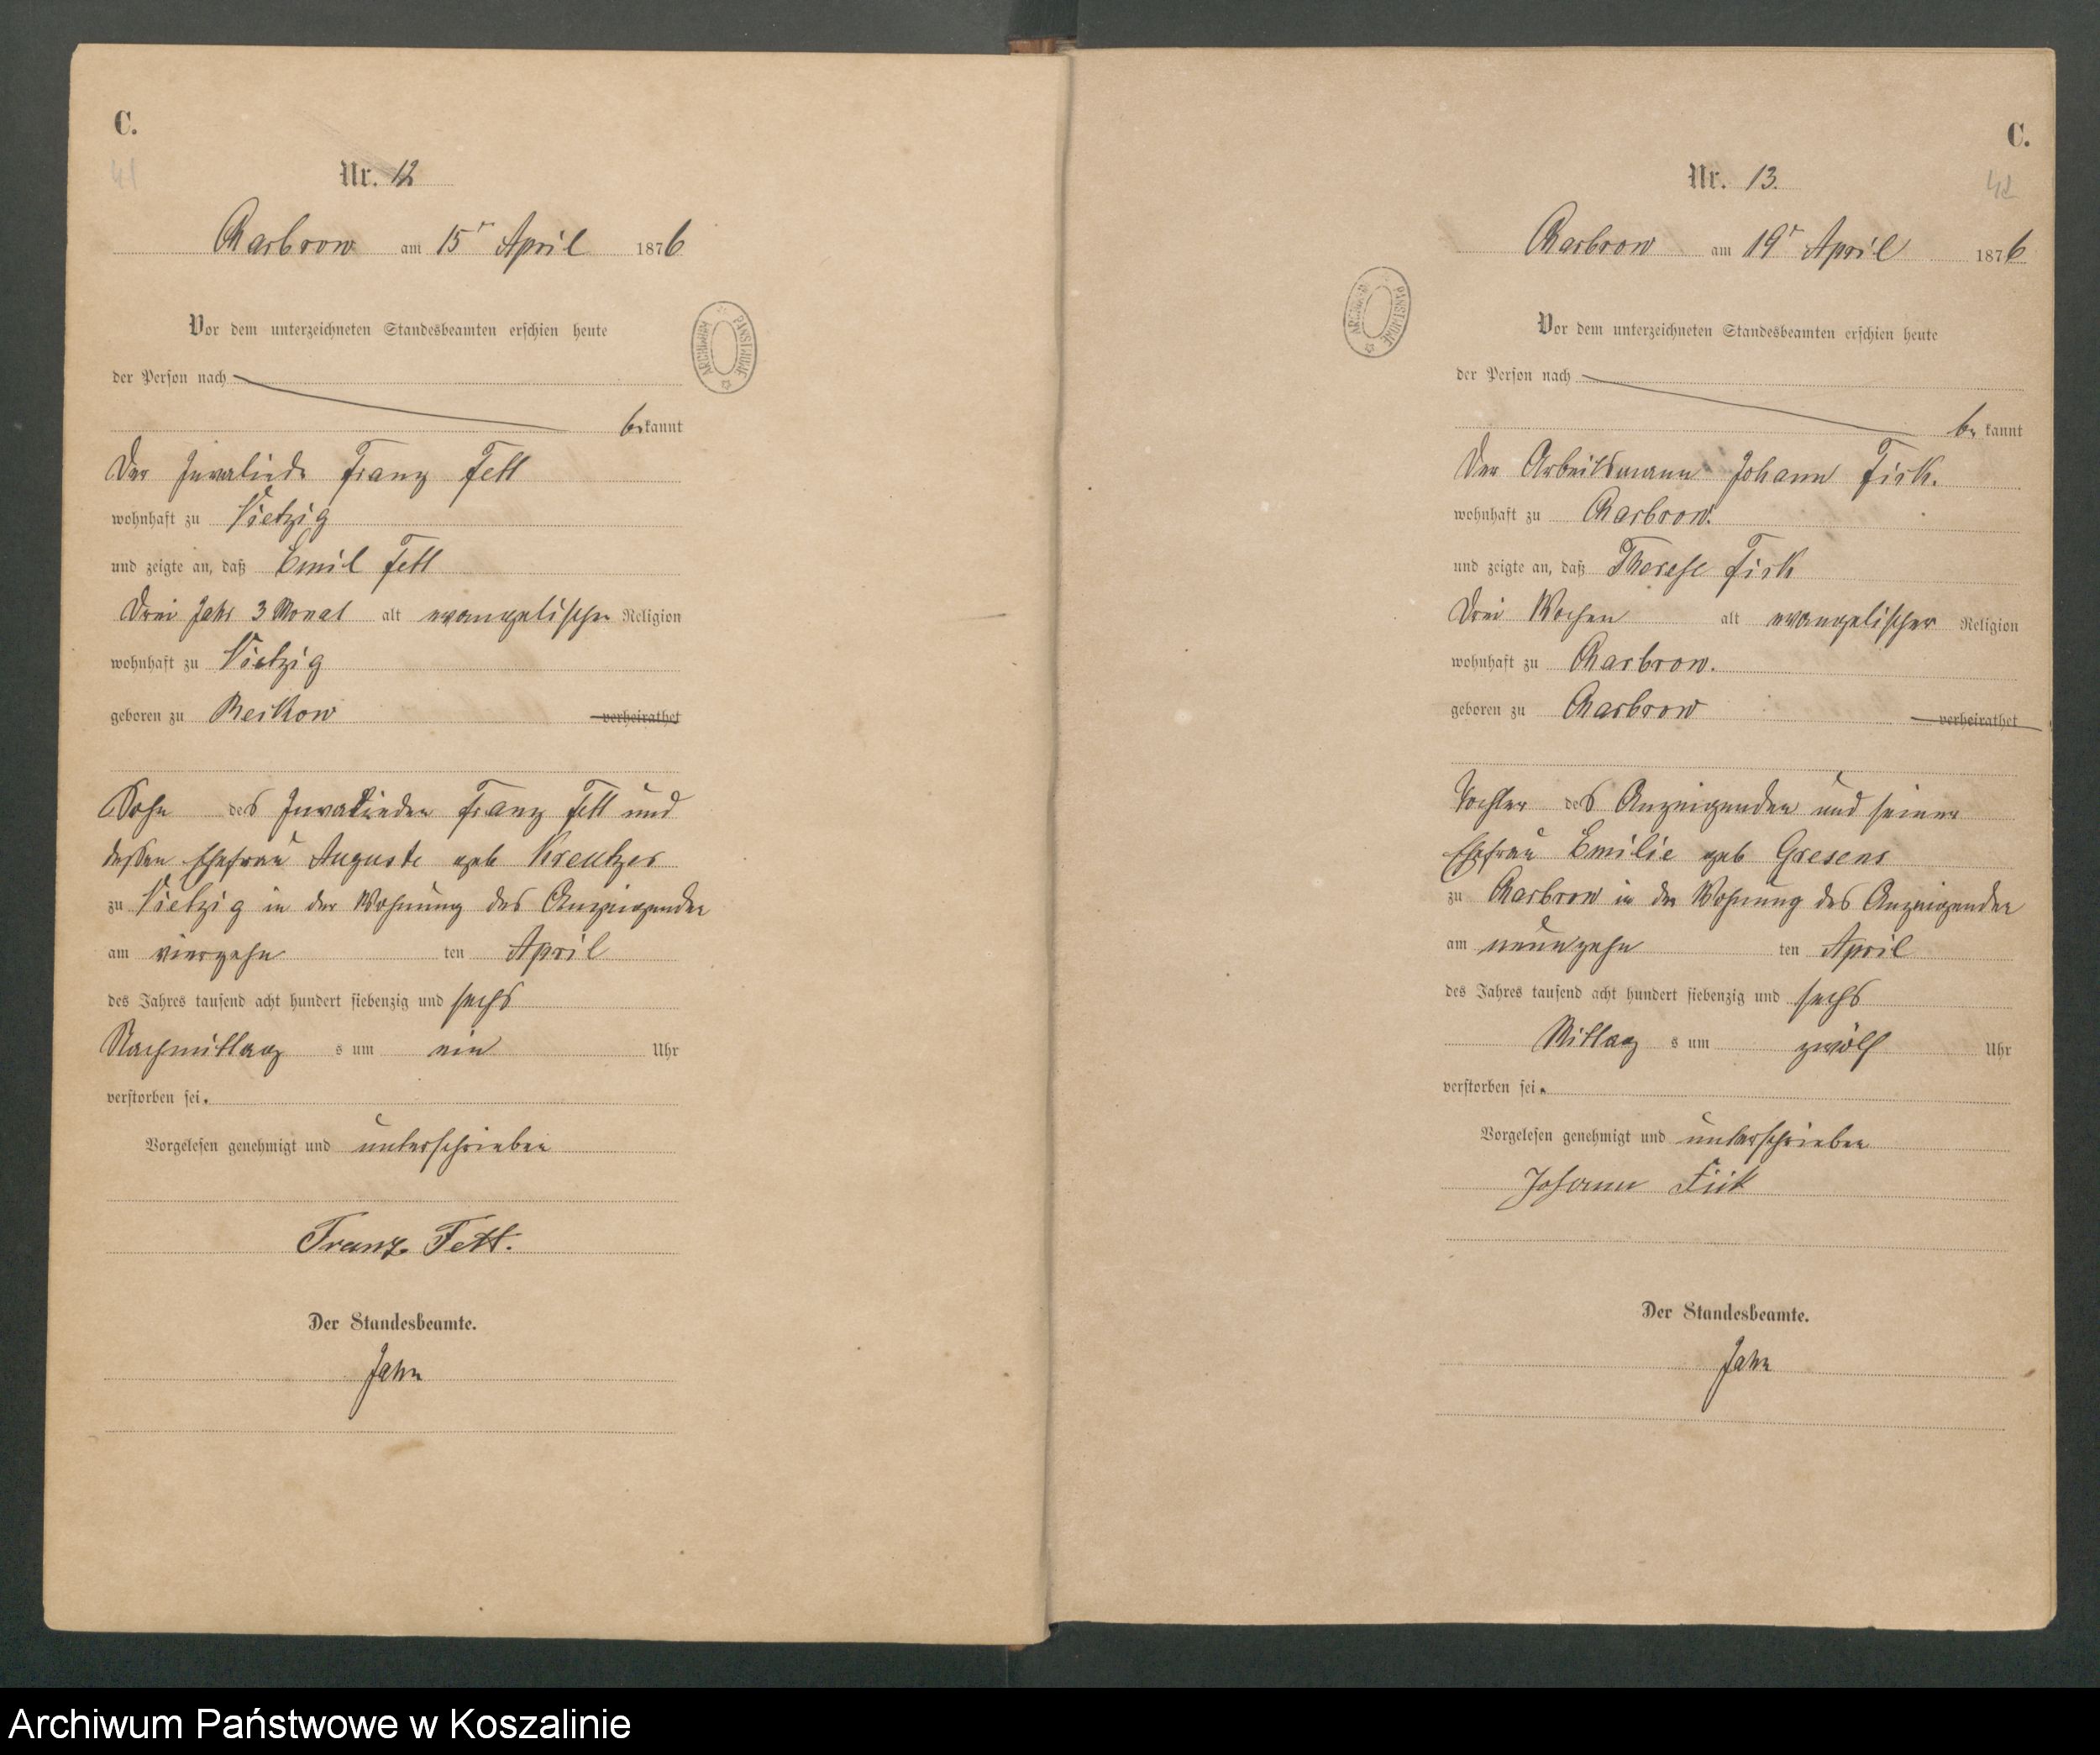 C.
41
Nr. 12
Charbrow am 15t April 1876
Vor dem unterzeichneten Standesbeamten erschien heute
der Person nach
bekannt
ARCHIWUM PAŃSTWOWE
Der Invaliede Franz Fett
wohnhaft zu Vietzig
und zeigte an, daß Emil Fett
Drei Jahr 3 Monat alt evangelischer Religion
wohnhaft zu Vietzig
geboren zu verheirathet
Sohn des Invalieden Franz Fett und
dessen Ehefrau Auguste geb Kreutzer
zu Vietzig in der Wohnung des Anzeigenden
am vierzehn ten April
des Jahres tausend acht hundert siebenzig und sechs
Nachmittag s um ein Uhr
verstorben sei.
Vorgelesen genehmigt und unterschrieben
Franz Fett.
Der Standesbeamte.
Jahn
C.
42
Nr. 13.
Charbrow am 19t April 1876
Vor dem unterzeichneten Standesbeamten erschien heute
der Person nach
be kannt
ARCHIWUM PAŃSTWOWE
Der Arbeitsmann Johann Fick.
wohnhaft zu Charbrow.
und zeigte an, daß Therese Fick
Drei Wochen alt evangelischer Religion
wohnhaft zu Charbrow.
geboren zu Charbrow verheirathet
Tochter des Anzeigenden und seiner
Ehefrau Emilie geb Gresens
zu Charbrow in der Wohnung des Anzeigenden
am neunzehn ten April
des Jahres tausend acht hundert siebenzig und sechs
Mittag s um zwölf Uhr
verstorben sei.
Vorgelesen genehmigt und unterschrieben
Johann Fick
Der Standesbeamte.
Jahn
Archiwum Państwowe w Koszalinie